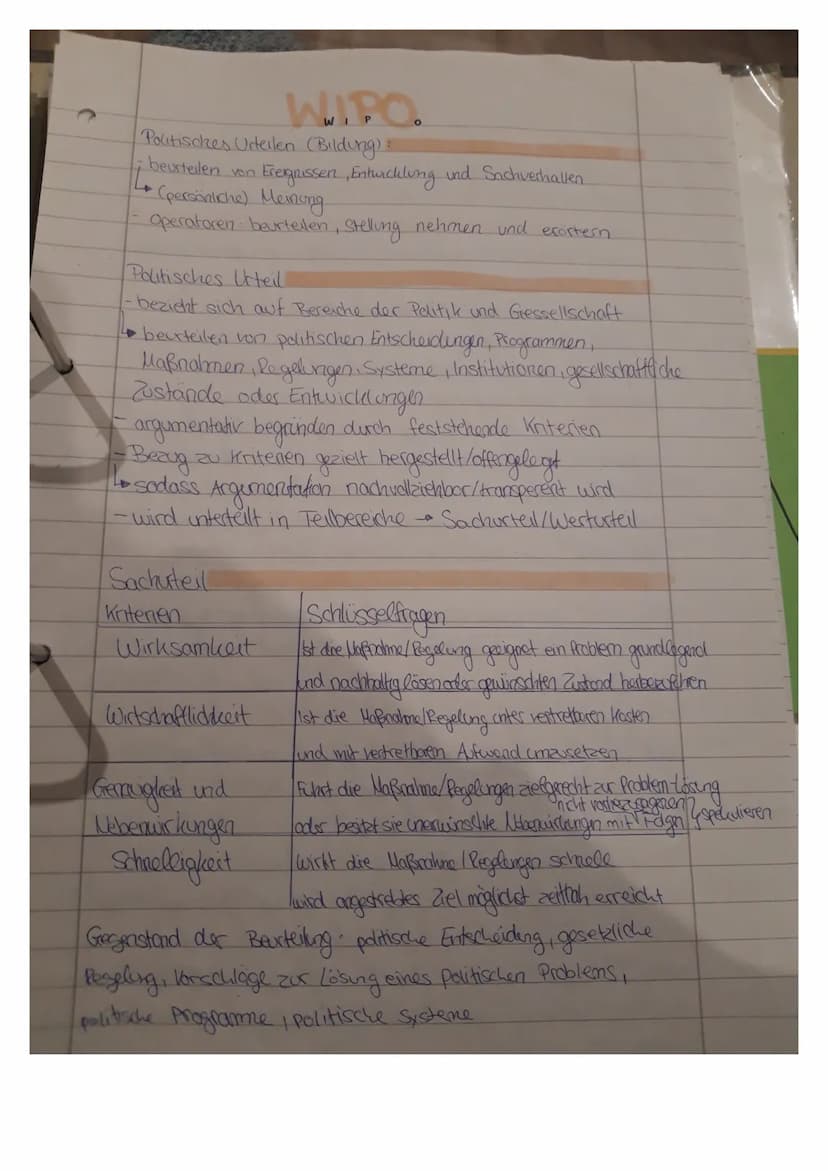 WIPO
W I P O
Politisches Urteilen (Bildung):
- beurteilen von Ereignissen, Entwicklung und Sachverhalten
↳ (persönliche) Meinung
- operatoren beurteilen, Stellung nehmen und erörtern
Politisches Urteil
- bezieht sich auf Bereiche der Politik und Gessellschaft
↳ beurteilen von politischen Entscheidungen, Programmen,
Maßnahmen, Regelungen, Systeme, Institutionen, gesellschaftliche
Zustände oder Entwicklungen
- argumentativ begründen durch feststehende Kriterien
- Bezug zu Kriterien gezielt hergestellt/offengelegt
↳ sodass Argumentation nachvollziehbar/transperent wird
- wird unterteilt in Teilbereiche → Sachurteil/Werturteil
Sachurteil
Kriterien Schlüsselfragen
Wirksamkeit Ist die Maßnahme/Regelung geeignet ein Problem grundlegend
und nachhaltig lösen oder gewünschten Zustand herbeizuführen
Wirtschaftlichkeit Ist die Maßnahme/Regelung unter vertretbaren Kosten
und mit vertretbaren Aufwand umzusetzen
Genauigkeit und Führt die Maßnahme/Regelungen zielgerecht zur Problem-Lösung
nicht vorherzusagenen
Nebenwirkungen oder besitzt sie unerwünschte Nebenwirkungen mit Folgen ↳ spekulieren
Schnelligkeit Wirkt die Maßnahme/Regelungen schnell
wird angestrebtes Ziel möglichst zeitnah erreicht
Gegenstand der Beurteilung: politische Entscheidung, gesetzliche
Regelung, Vorschläge zur Lösung eines politischen Problems,
politische Programme, politische Systeme